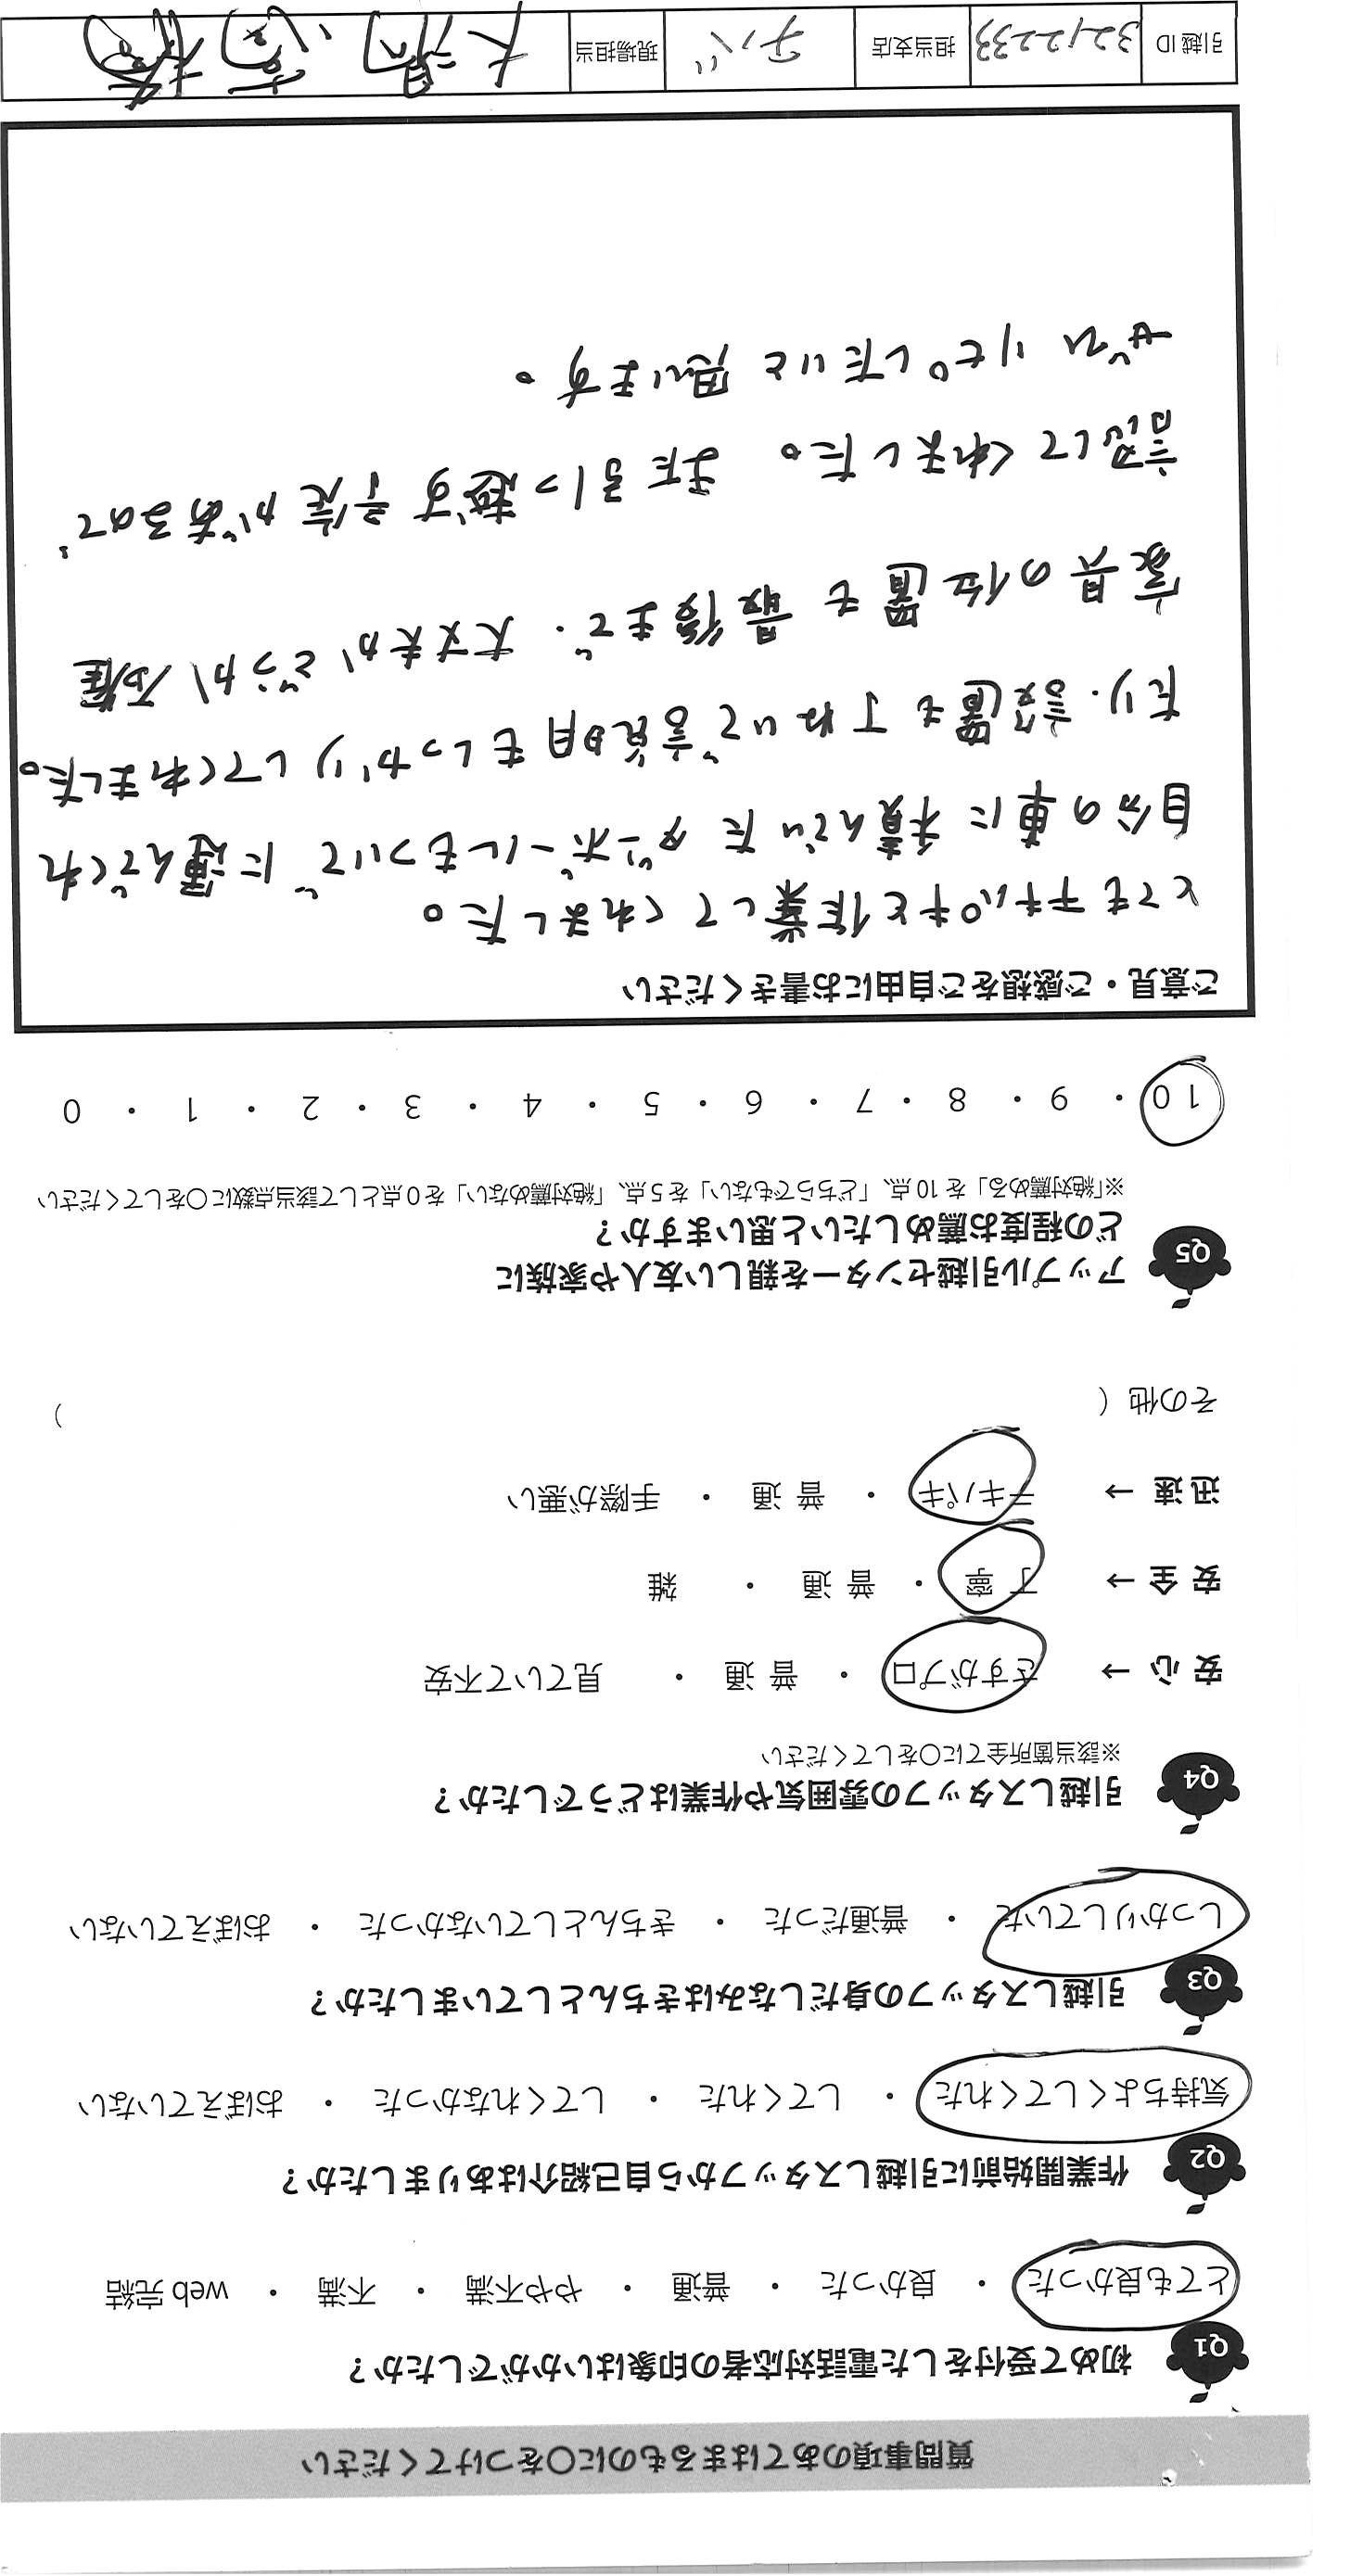 質問事項のあてはまるものに○をつけてください
Q1 初めて受付をした電話対応者の印象はいかがでしたか？
とても良かった ・ 良かった ・ 普通 ・ やや不満 ・ 不満 ・ web 完結
Q2 作業開始前に引越しスタッフから自己紹介はありましたか？
気持ちよくしてくれた ・ してくれた ・ してくれなかった ・ おぼえていない
Q3 引越しスタッフの身だしなみはきちんとしていましたか？
しっかりしていた ・ 普通だった ・ きちんとしていなかった ・ おぼえていない
Q4 引越しスタッフの雰囲気や作業はどうでしたか？
※該当箇所全てに○をしてください
安 心 → さすがプロ ・ 普 通 ・ 見ていて不安
安 全 → 丁 寧 ・ 普 通 ・ 雑
迅 速 → テキパキ ・ 普 通 ・ 手際が悪い
その他（ ）
Q5 アップル引越センターを親しい友人や家族に
どの程度お薦めしたいと思いますか？
※「絶対薦める」を 10 点、「どちらでもない」を 5 点、「絶対薦めない」を 0 点として該当点数に○をしてください
10 ・ 9 ・ 8 ・ 7 ・ 6 ・ 5 ・ 4 ・ 3 ・ 2 ・ 1 ・ 0
ご意見・ご感想をご自由にお書きください
とてもテキパキと作業してくれました。
自分の車に積んでいた ダンボールもついでに運んでくれ
たり、設置も丁ねいで説明もしっかりしてくれました。
家具の位置も最後まで、大丈夫かどうか確
認してくれました。また引っ越す予定があるので、
ぜひ リピしたいと思います。
引越 ID 3212233 担当支店 チバ 現場担当 大澗、